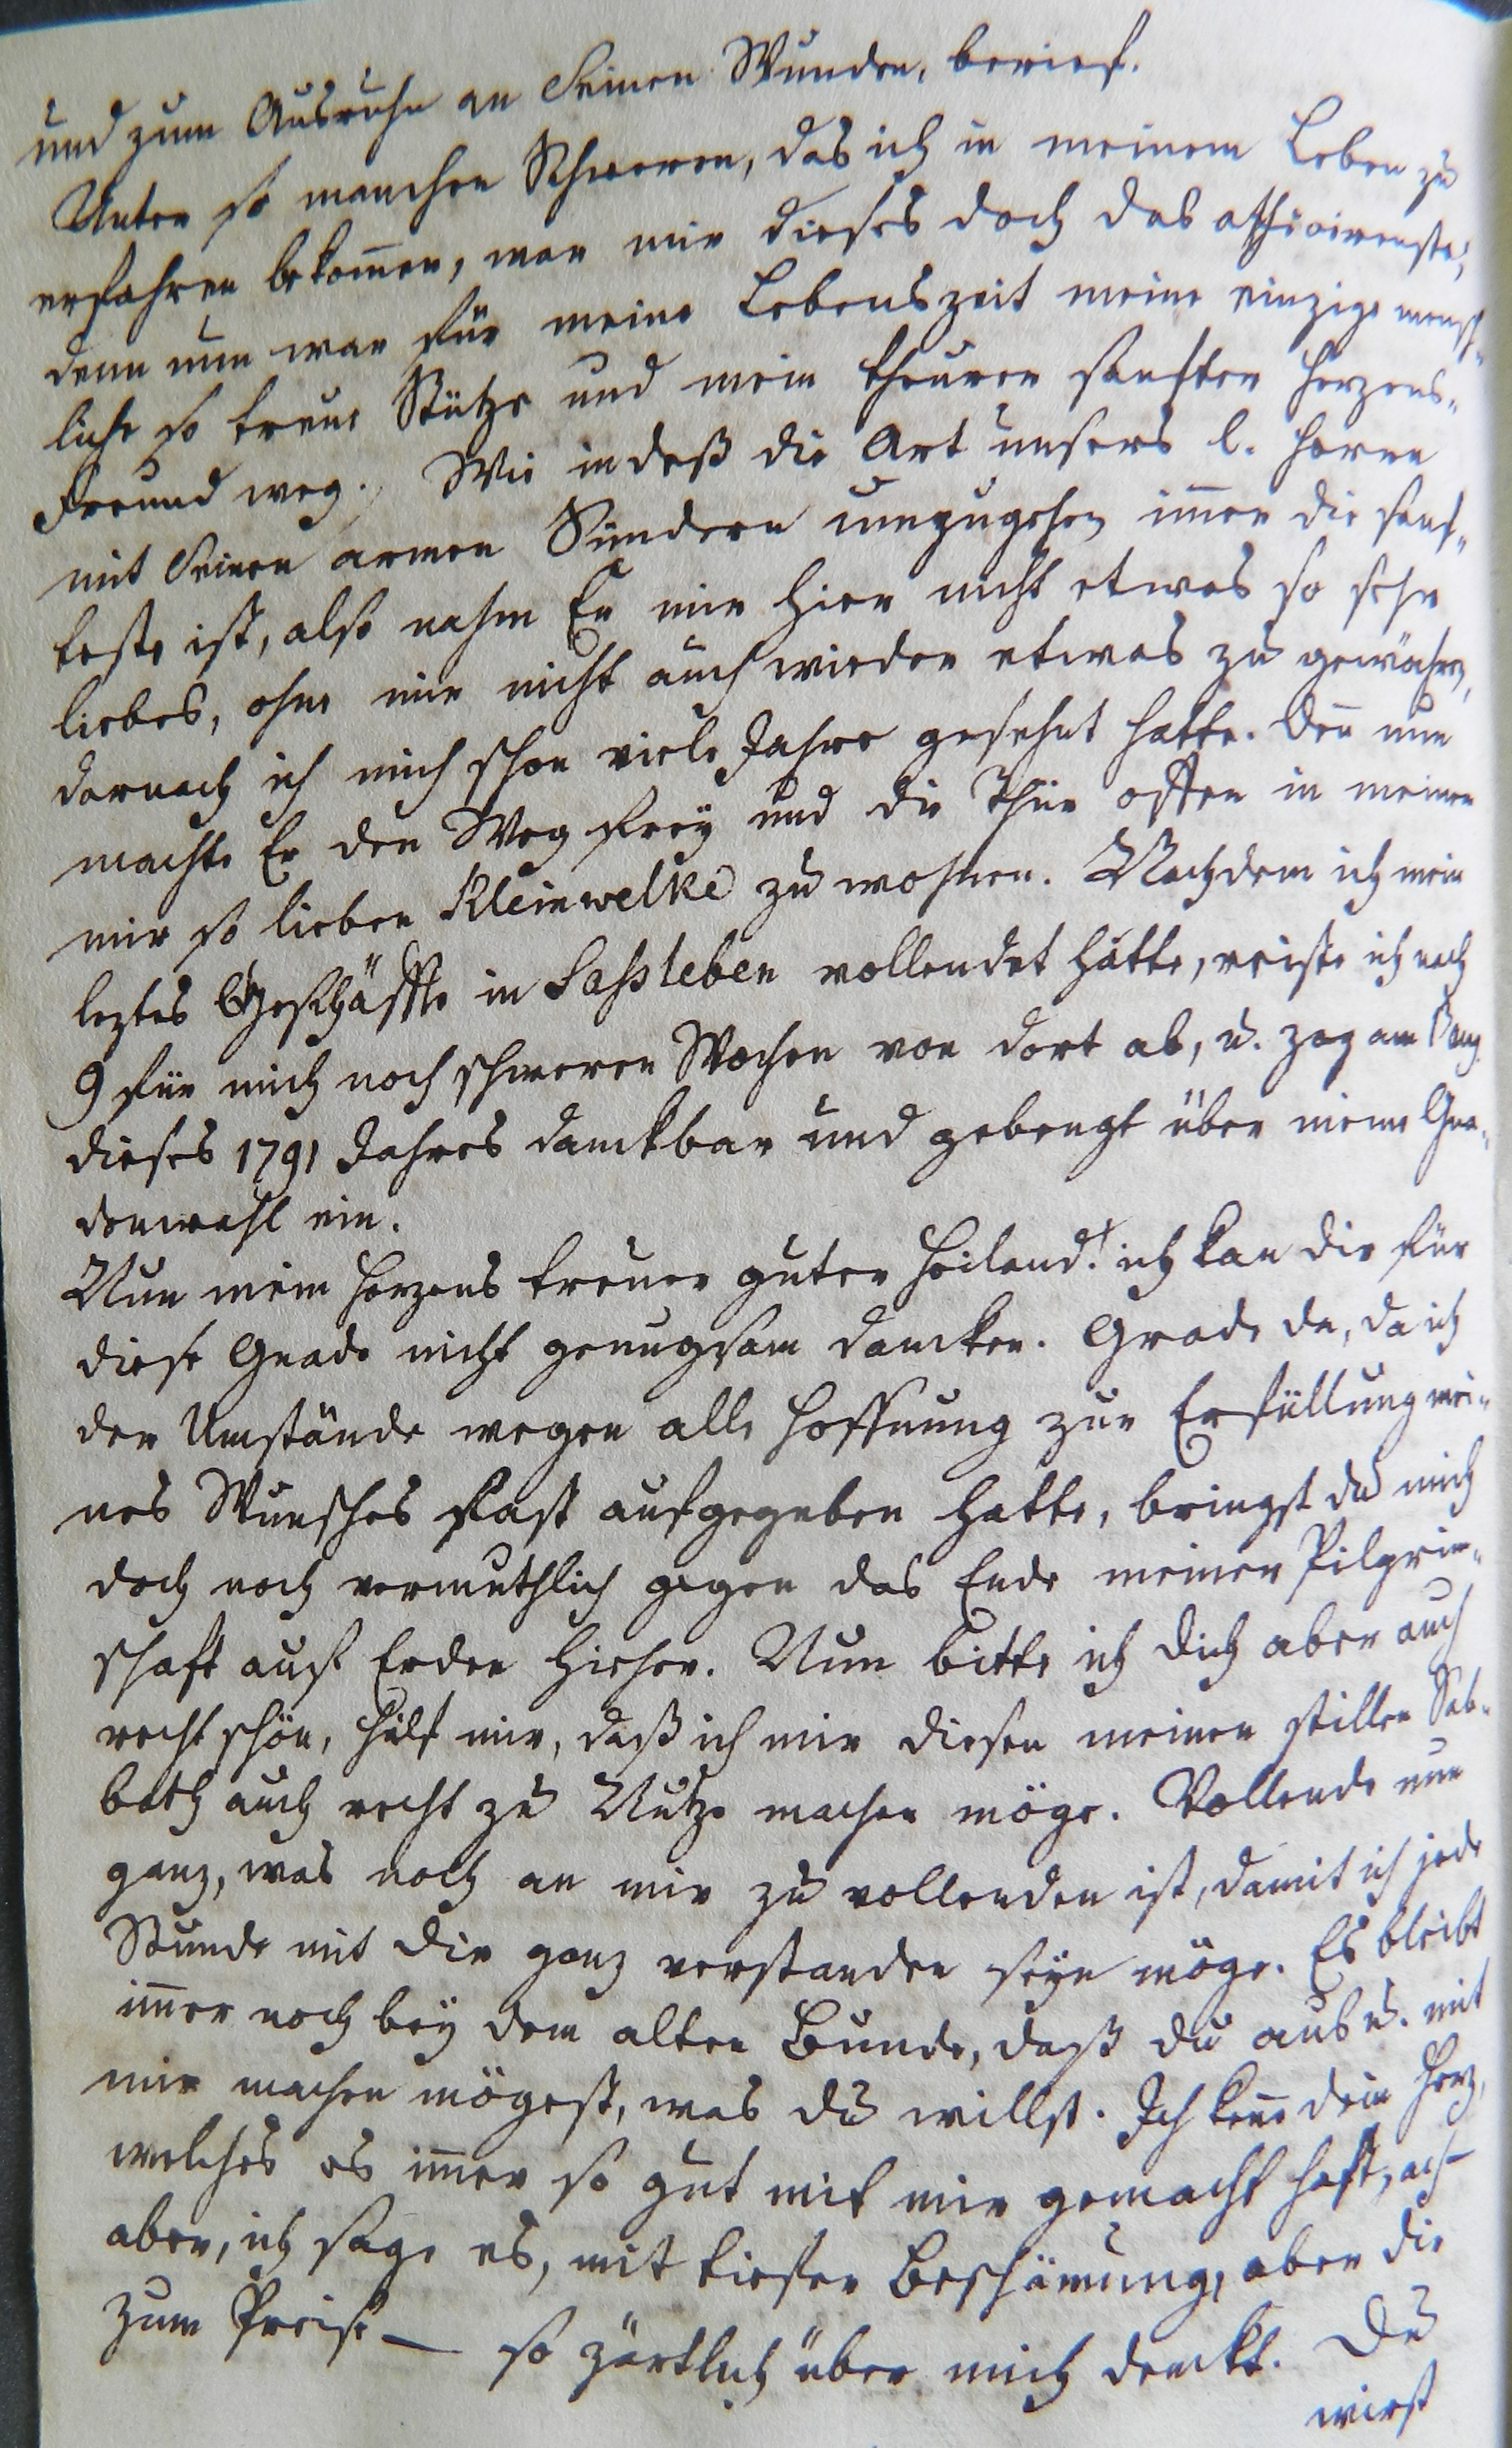 und zum Ausruhn an Seinen Wunden, berief.
Unter so manchen Schweren, das ich in meinem Leben zu
erfahren bekom̅en, war mir dieses doch das
denn nun war für meine Lebenszeit meine einzige mensch-
liche so treue Stütze und mein theurer sanfter Herzens-
Freund weg. Wie indeß die Art unsers l. Herrn
mit Seinen armen Sündern umzugehen im̅er die sanf-
teste ist, also nahm Er mir hier nicht etwas so sehr
liebes, ohne mir nicht auch wieder etwas zu gewähren,
darnach ich mich schon viele Jahre gesehnt hatte. Den̅ nun
machte Er den Weg frey und die Thür offen in meinen
mir so lieben Kleinwelke zu wohnen. Nachdem ich mein
leztes Geschäffte in Sassleben vollendet hatte, reiste ich nach
9 für mich noch schweren Wochen von dort ab, u. zog am Aug.
dieses 1791 Jahres danckbar und gebeugt über meine Gna-
denwahl ein.
Nun mein Herzens treuer guter Heiland! ich kan dir für
diese Gnade nicht genugsam dancken. Grade da, da ich
der Umstände wegen alle Hoffnung zur Erfüllung mei-
nes Wunsches fast aufgegeben hatte, bringst du mich
doch noch vermuthlich gegen das Ende meiner Pilgrim-
schaft auf Erden hieher. Nun bitte ich dich aber auch
recht schön, hilf mir, daß ich mir diesen meinen stillen Sab-
bath auch recht zu Nutze machen möge. Vollende nun
ganz, was noch an mir zu vollenden ist, damit ich jede
Stunde mit dir ganz verstanden seyn möge. Es bleibt
im̅er noch bey dem alten Bunde, daß du aus u. mit
mir machen mögest, was du willst. Ich ken̅e dein Herz,
welches es im̅er so gut mit mir gemacht hast, ach
aber, ich sage es, mit tiefer Beschämung, aber dir
zum Preise — so zärtlich über mich denckt. Du
wirst